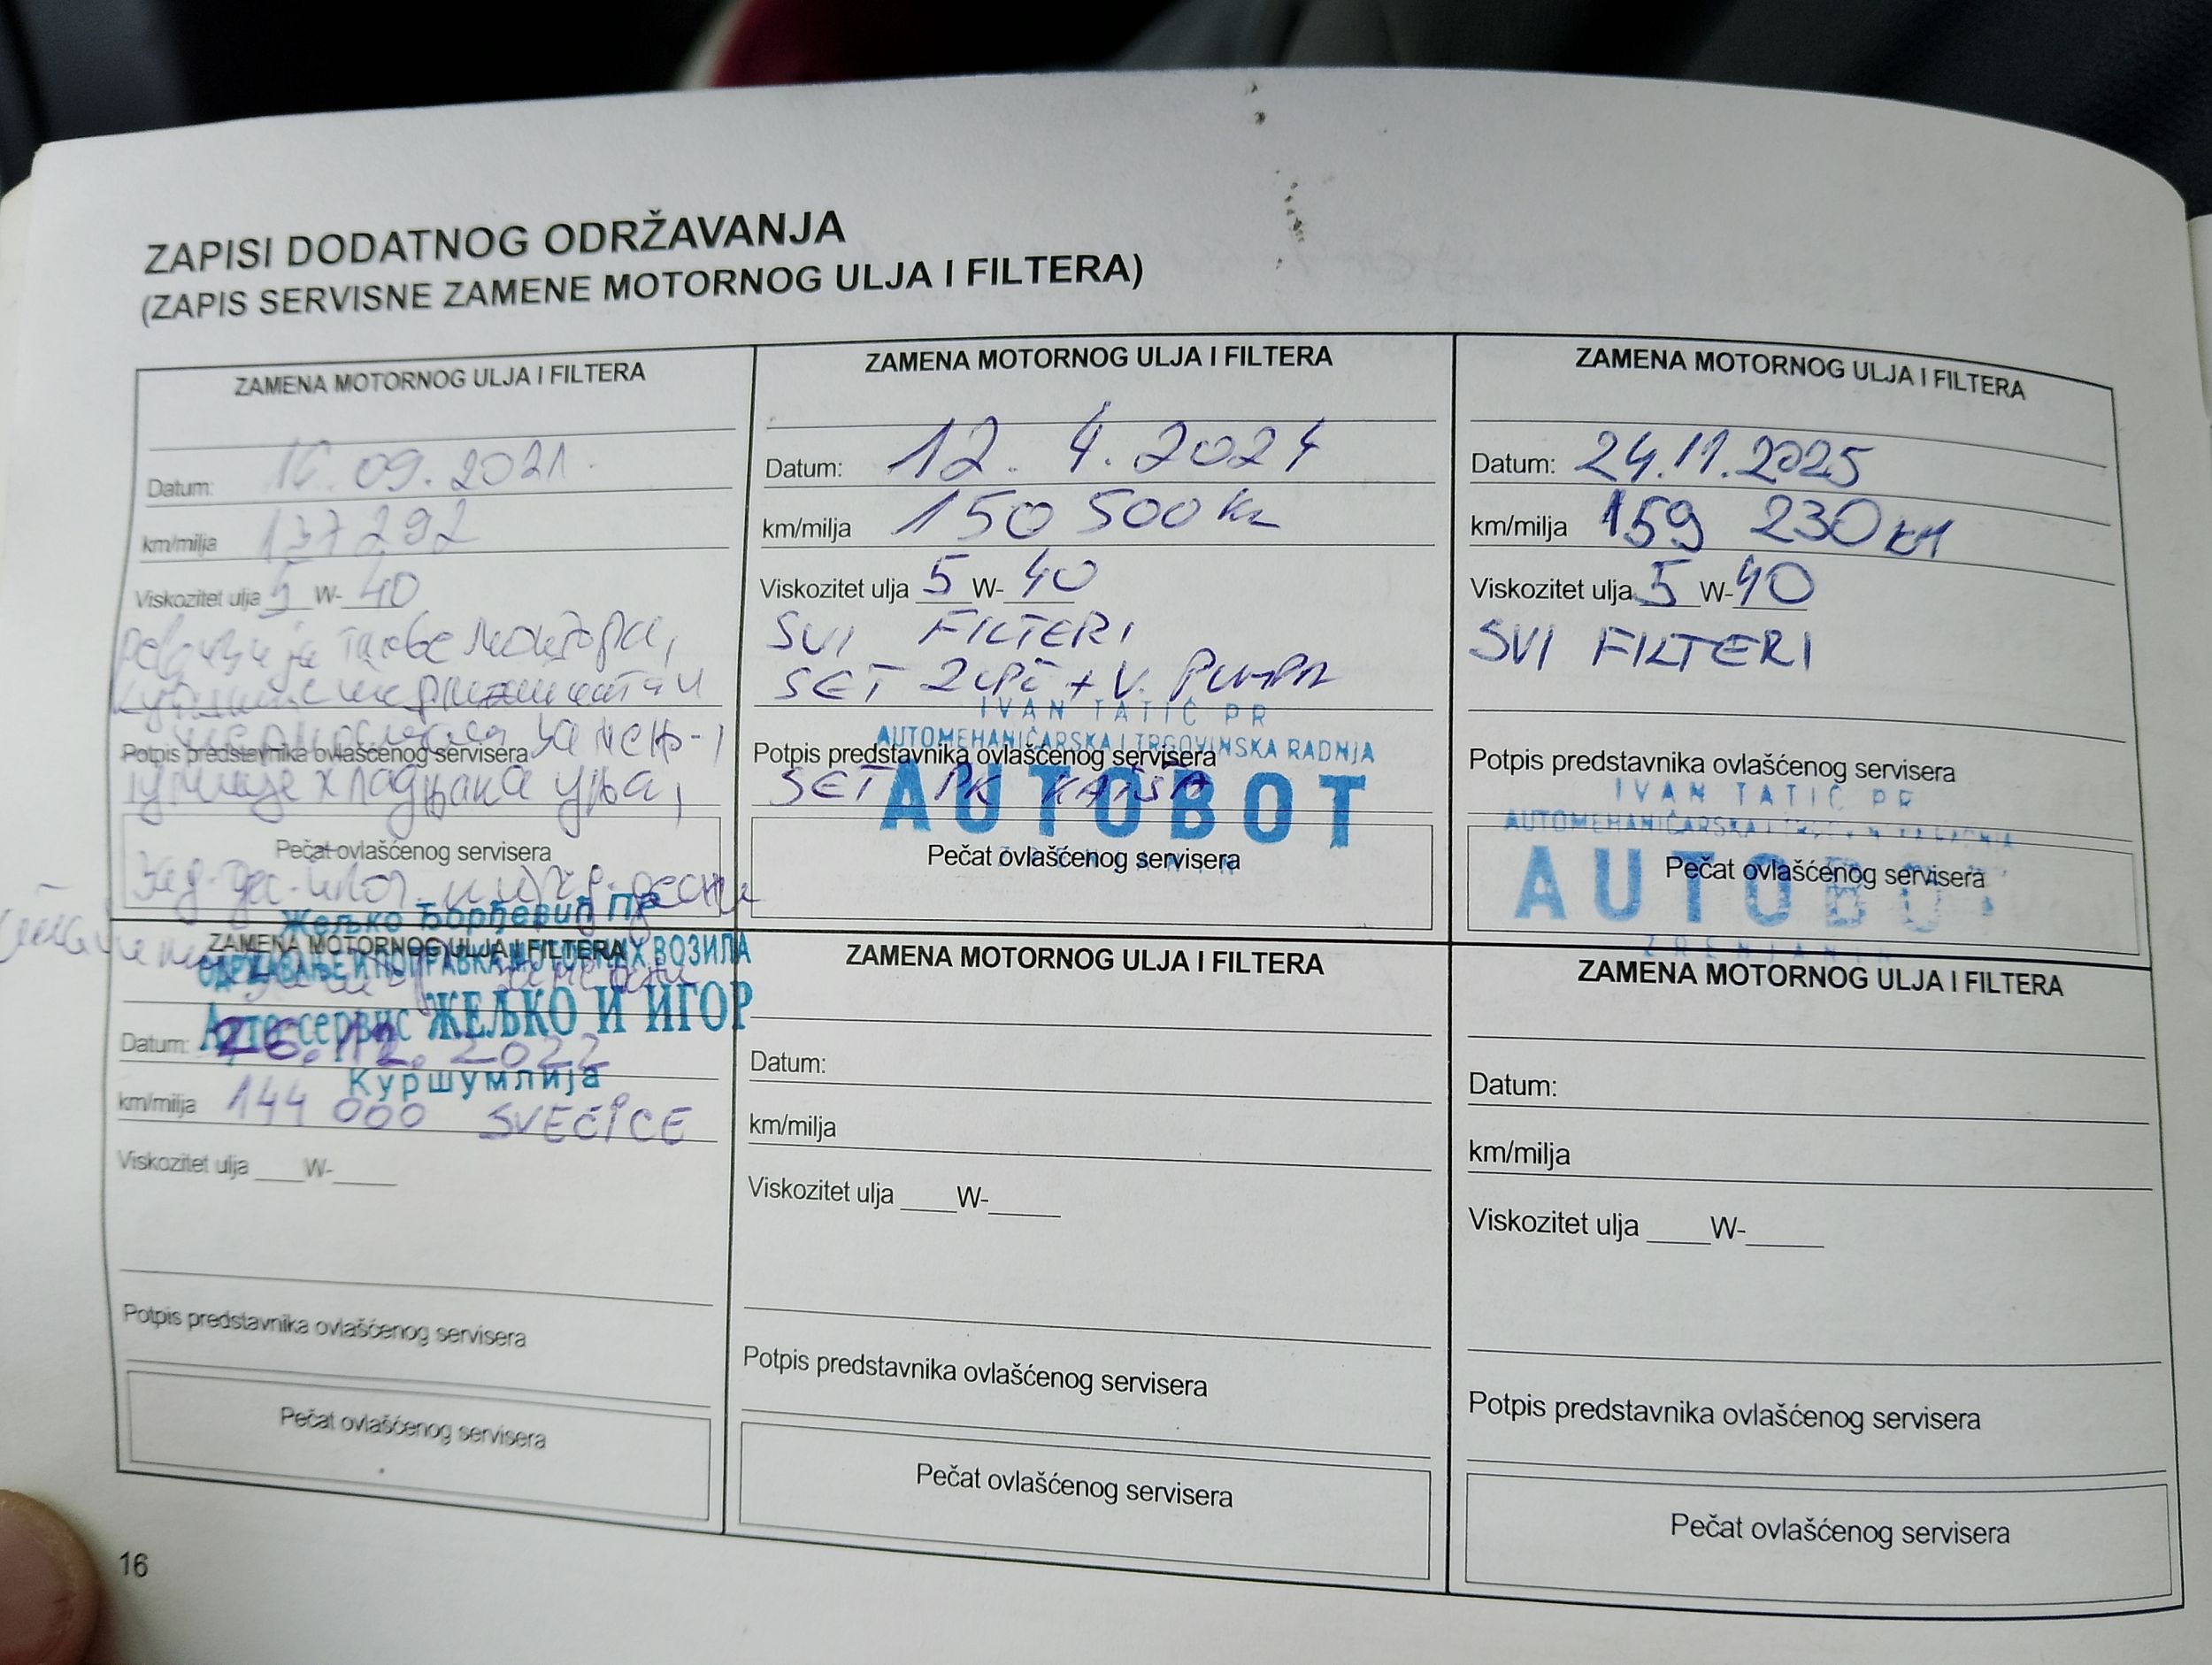 ZAPISI DODATNOG ODRŽAVANJA
(ZAPIS SERVISNE ZAMENE MOTORNOG ULJA I FILTERA)
ZAMENA MOTORNOG ULJA I FILTERA
Datum: 09.2021.
km/milja 137292
Viskozitet ulja 5 W- 40
Potpis predstavnika ovlašćenog servisera
хладњака уља,
Pečat ovlašćenog servisera
Жељко Ђорђевић ПР
ОДРЖАВАЊЕ И ПОПРАВКА МОТОРНИХ ВОЗИЛА
Ауто сервис ЖЕЉКО И ИГОР
Куршумлија
ZAMENA MOTORNOG ULJA I FILTERA
Datum: 12.4.2024
km/milja 150 500 km
Viskozitet ulja 5 W- 40
SVI FILTERI
SET ZUPČ + V. PUMPA
IVAN TATIĆ PR
AUTOMEHANIČARSKA I TRGOVINSKA RADNJA
Potpis predstavnika ovlašćenog servisera
SET PK KAIŠA
AUTOBOT
Pečat ovlašćenog servisera
ZAMENA MOTORNOG ULJA I FILTERA
Datum: 24.11.2025
km/milja 159 230 km
Viskozitet ulja 5 W- 40
SVI FILTERI
Potpis predstavnika ovlašćenog servisera
IVAN TATIĆ PR
AUTOMEHANIČARSKA I TRGOVINSKA RADNJA
AUTOBOT
Pečat ovlašćenog servisera
ZRENJANIN
ZAMENA MOTORNOG ULJA I FILTERA
Datum: 26.12.2022
km/milja 144 000 SVEĆICE
Viskozitet ulja ____W-_____
Potpis predstavnika ovlašćenog servisera
Pečat ovlašćenog servisera
ZAMENA MOTORNOG ULJA I FILTERA
Datum:
km/milja
Viskozitet ulja ____W-_____
Potpis predstavnika ovlašćenog servisera
Pečat ovlašćenog servisera
ZAMENA MOTORNOG ULJA I FILTERA
Datum:
km/milja
Viskozitet ulja ____W-_____
Potpis predstavnika ovlašćenog servisera
Pečat ovlašćenog servisera
16